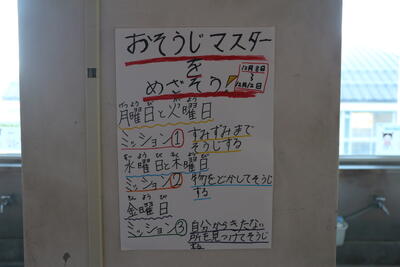 おそうじマスター
を
めざそう!
12月8日
〜
12月12日
げつ よう び か よう び
月曜日と火曜日
ミッション① すみずみまで
そうじする
すい よう び もく よう び
水曜日と木曜日
ミッション② 物をどかしてそうじ
する
きん よう び
金曜日
ミッション③ 自分からきたない
所を見つけてそうじ
する